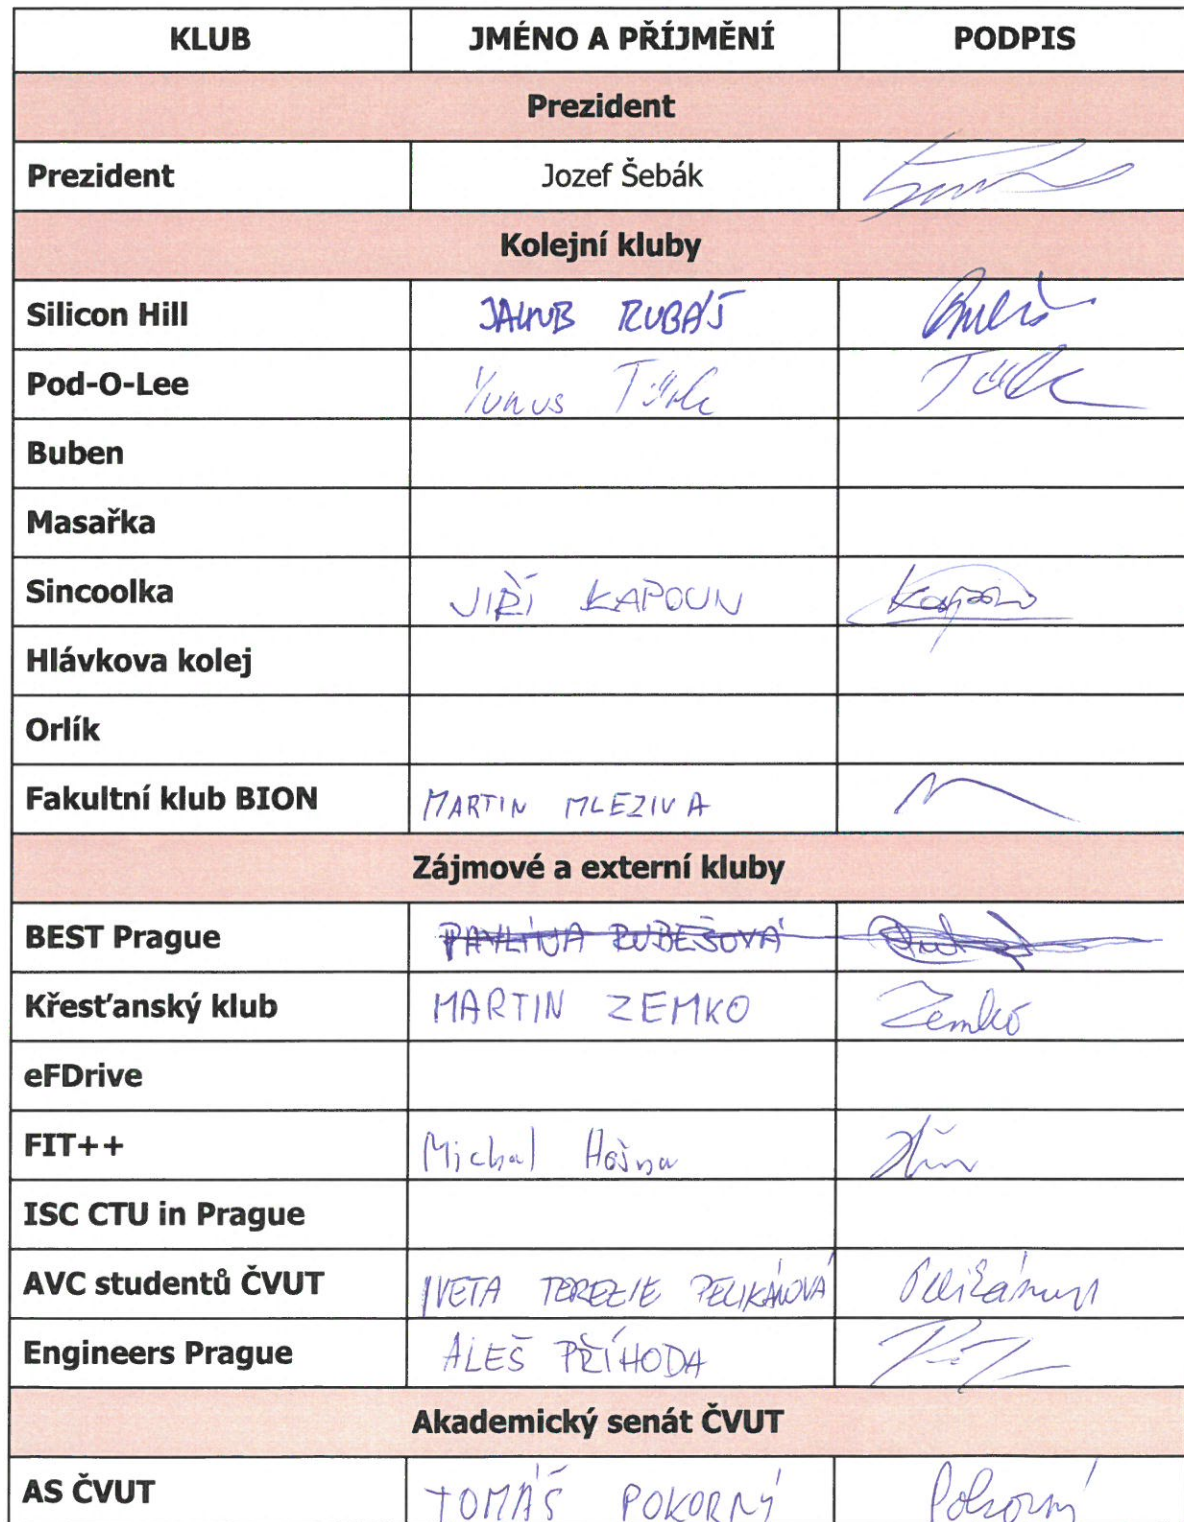 KLUB JMÉNO A PŘÍJMĚNÍ PODPIS
Prezident
Prezident Jozef Šebák
Kolejní kluby
Silicon Hill JAKUB RUBÁŠ
Pod-O-Lee Yunus Türk
Buben
Masařka
Sincoolka JIŘÍ KAPOUN Kapoun
Hlávkova kolej
Orlík
Fakultní klub BION MARTIN MLEZIVA
Zájmové a externí kluby
BEST Prague PAVLÍNA RUBEŠOVÁ
Křesťanský klub MARTIN ZEMKO Zemko
eFDrive
FIT++ Michal Hošna
ISC CTU in Prague
AVC studentů ČVUT IVETA TEREZIE PELIKÁNOVÁ
Engineers Prague ALEŠ PŘÍHODA
Akademický senát ČVUT
AS ČVUT TOMÁŠ POKORNÝ Pokorný